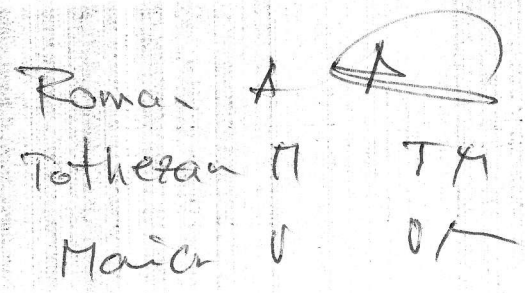 Roman A A
Tothezan M TM
Maior V VM